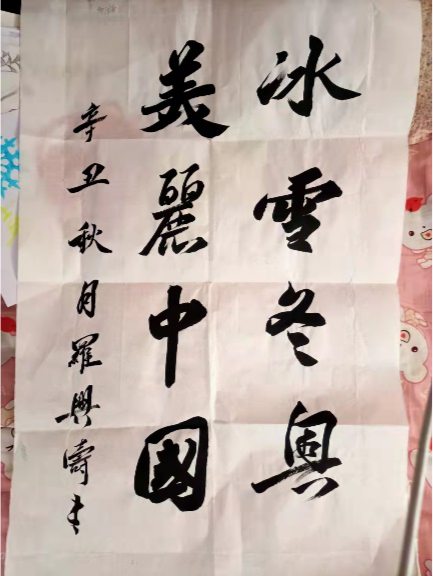 冰雪冬奥
美麗中國
辛丑秋月羅興濤书